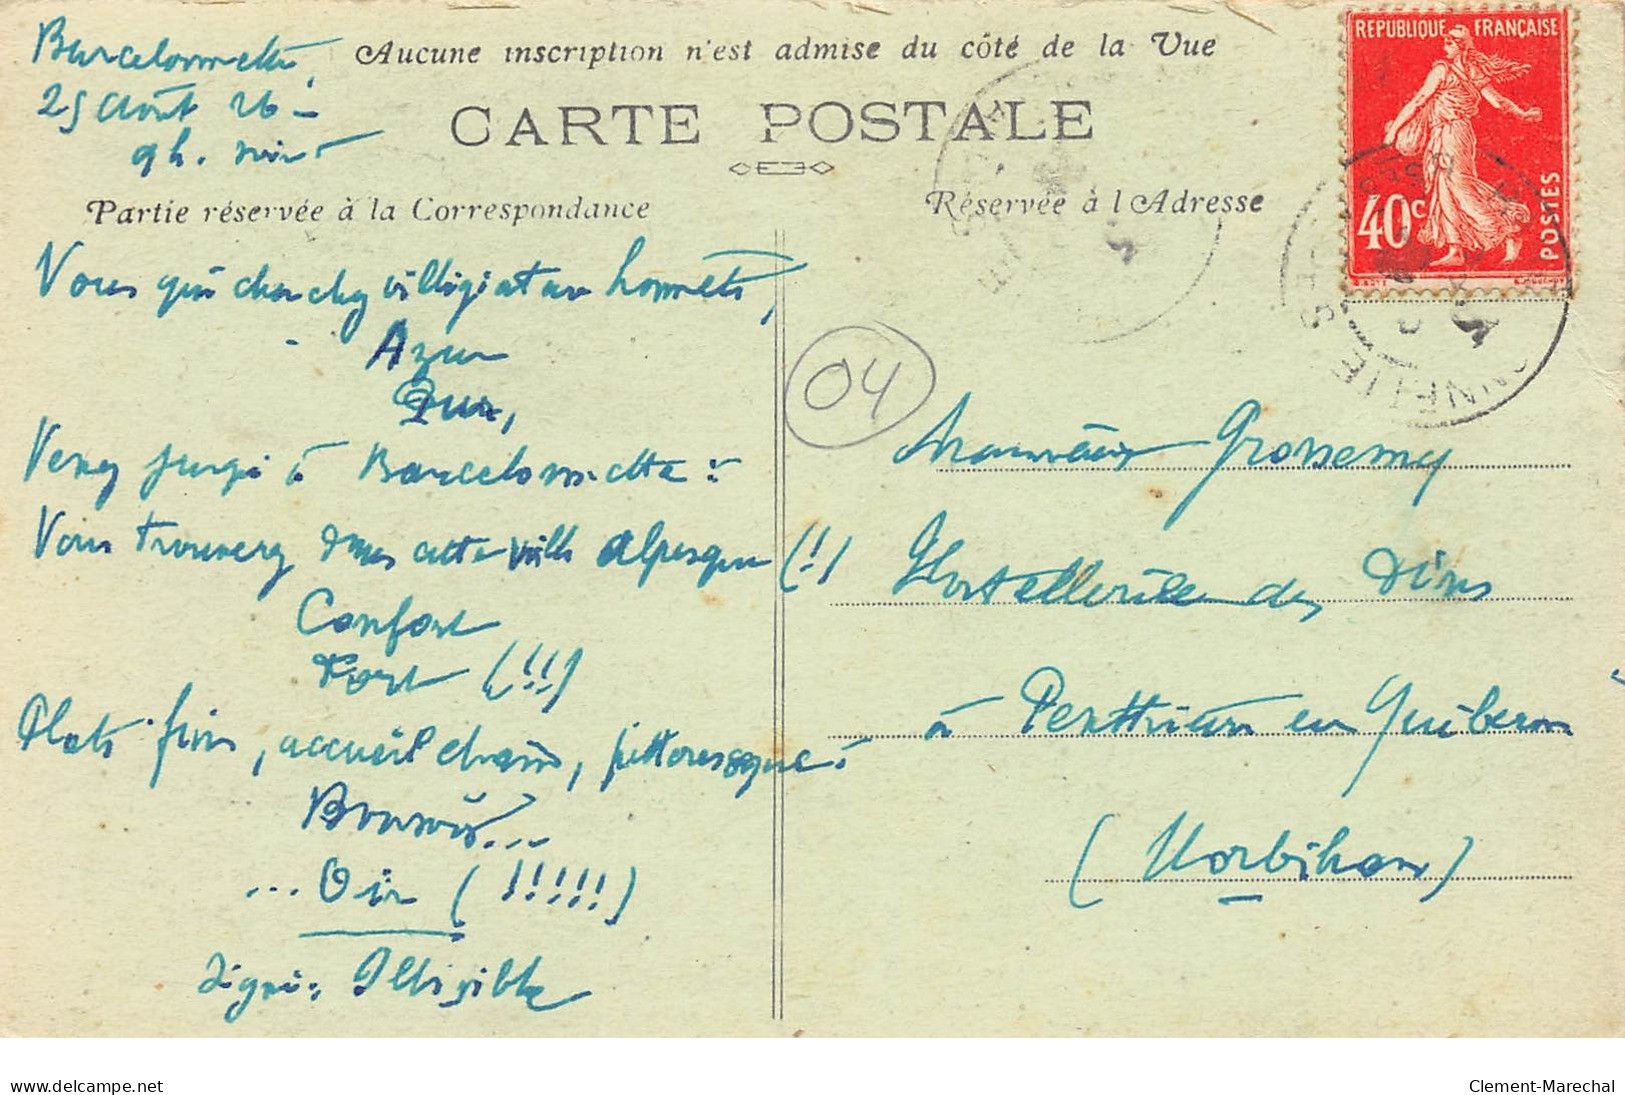 Barcelonnette,
25 Août 26 –
9h. soir
Aucune inscription n'est admise du côté de la Vue
CARTE POSTALE
Partie réservée à la Correspondance
Réservée à l'Adresse
REPUBLIQUE FRANÇAISE
40c
POSTES
Vous qui cherchez villégiature honnête,
Azur
Pur,
Venez jusqu'à Barcelonnette :
Vous trouverez dans cette ville alpesque (!)
Confort
Fort (!!!)
Plats fins, accueil charm, pittoresque !
Bonsoir...
... Oir (!!!!!)
signé : Illisible
04
Monsieur Grossemy
Hostellerie des Dunes
à Penthièvre en Quiberon
(Morbihan)
delcampe.net
Clement-Marechal